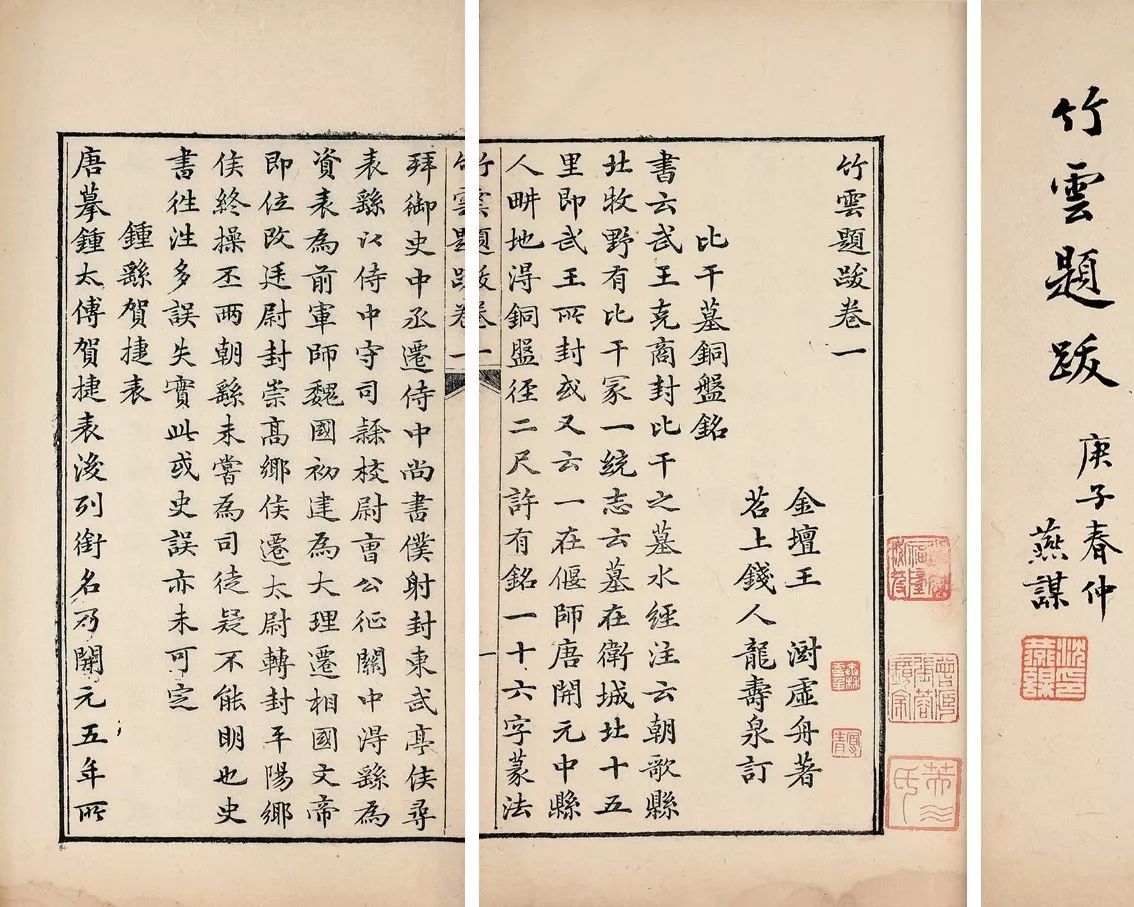 竹雲題跋
庚子春仲
燕謀
竹雲題跋卷一
金壇王 澍虛舟著
苕上錢人龍壽泉訂
比干墓銅盤銘
書云武王克商封比干之墓水經注云朝歌縣
北牧野有比干冢一統志云墓在衛城北十五
里即武王所封或又云一在偃師唐開元中縣
人畊地得銅盤徑二尺許有銘一十六字篆法
竹雲題跋卷一
一
拜御史中丞遷侍中尚書僕射封東武亭侯尋
表繇以侍中守司隸校尉曹公征關中得繇為
資表為前軍師魏國初建為大理遷相國文帝
即位改廷尉封崇高鄉侯遷太尉轉封平陽鄉
侯終操丕兩朝繇未嘗為司徒疑不能明也史
書往往多誤失實此或史誤亦未可定
鍾繇賀捷表
唐摹鍾太傅賀捷表後列銜名乃開元五年所